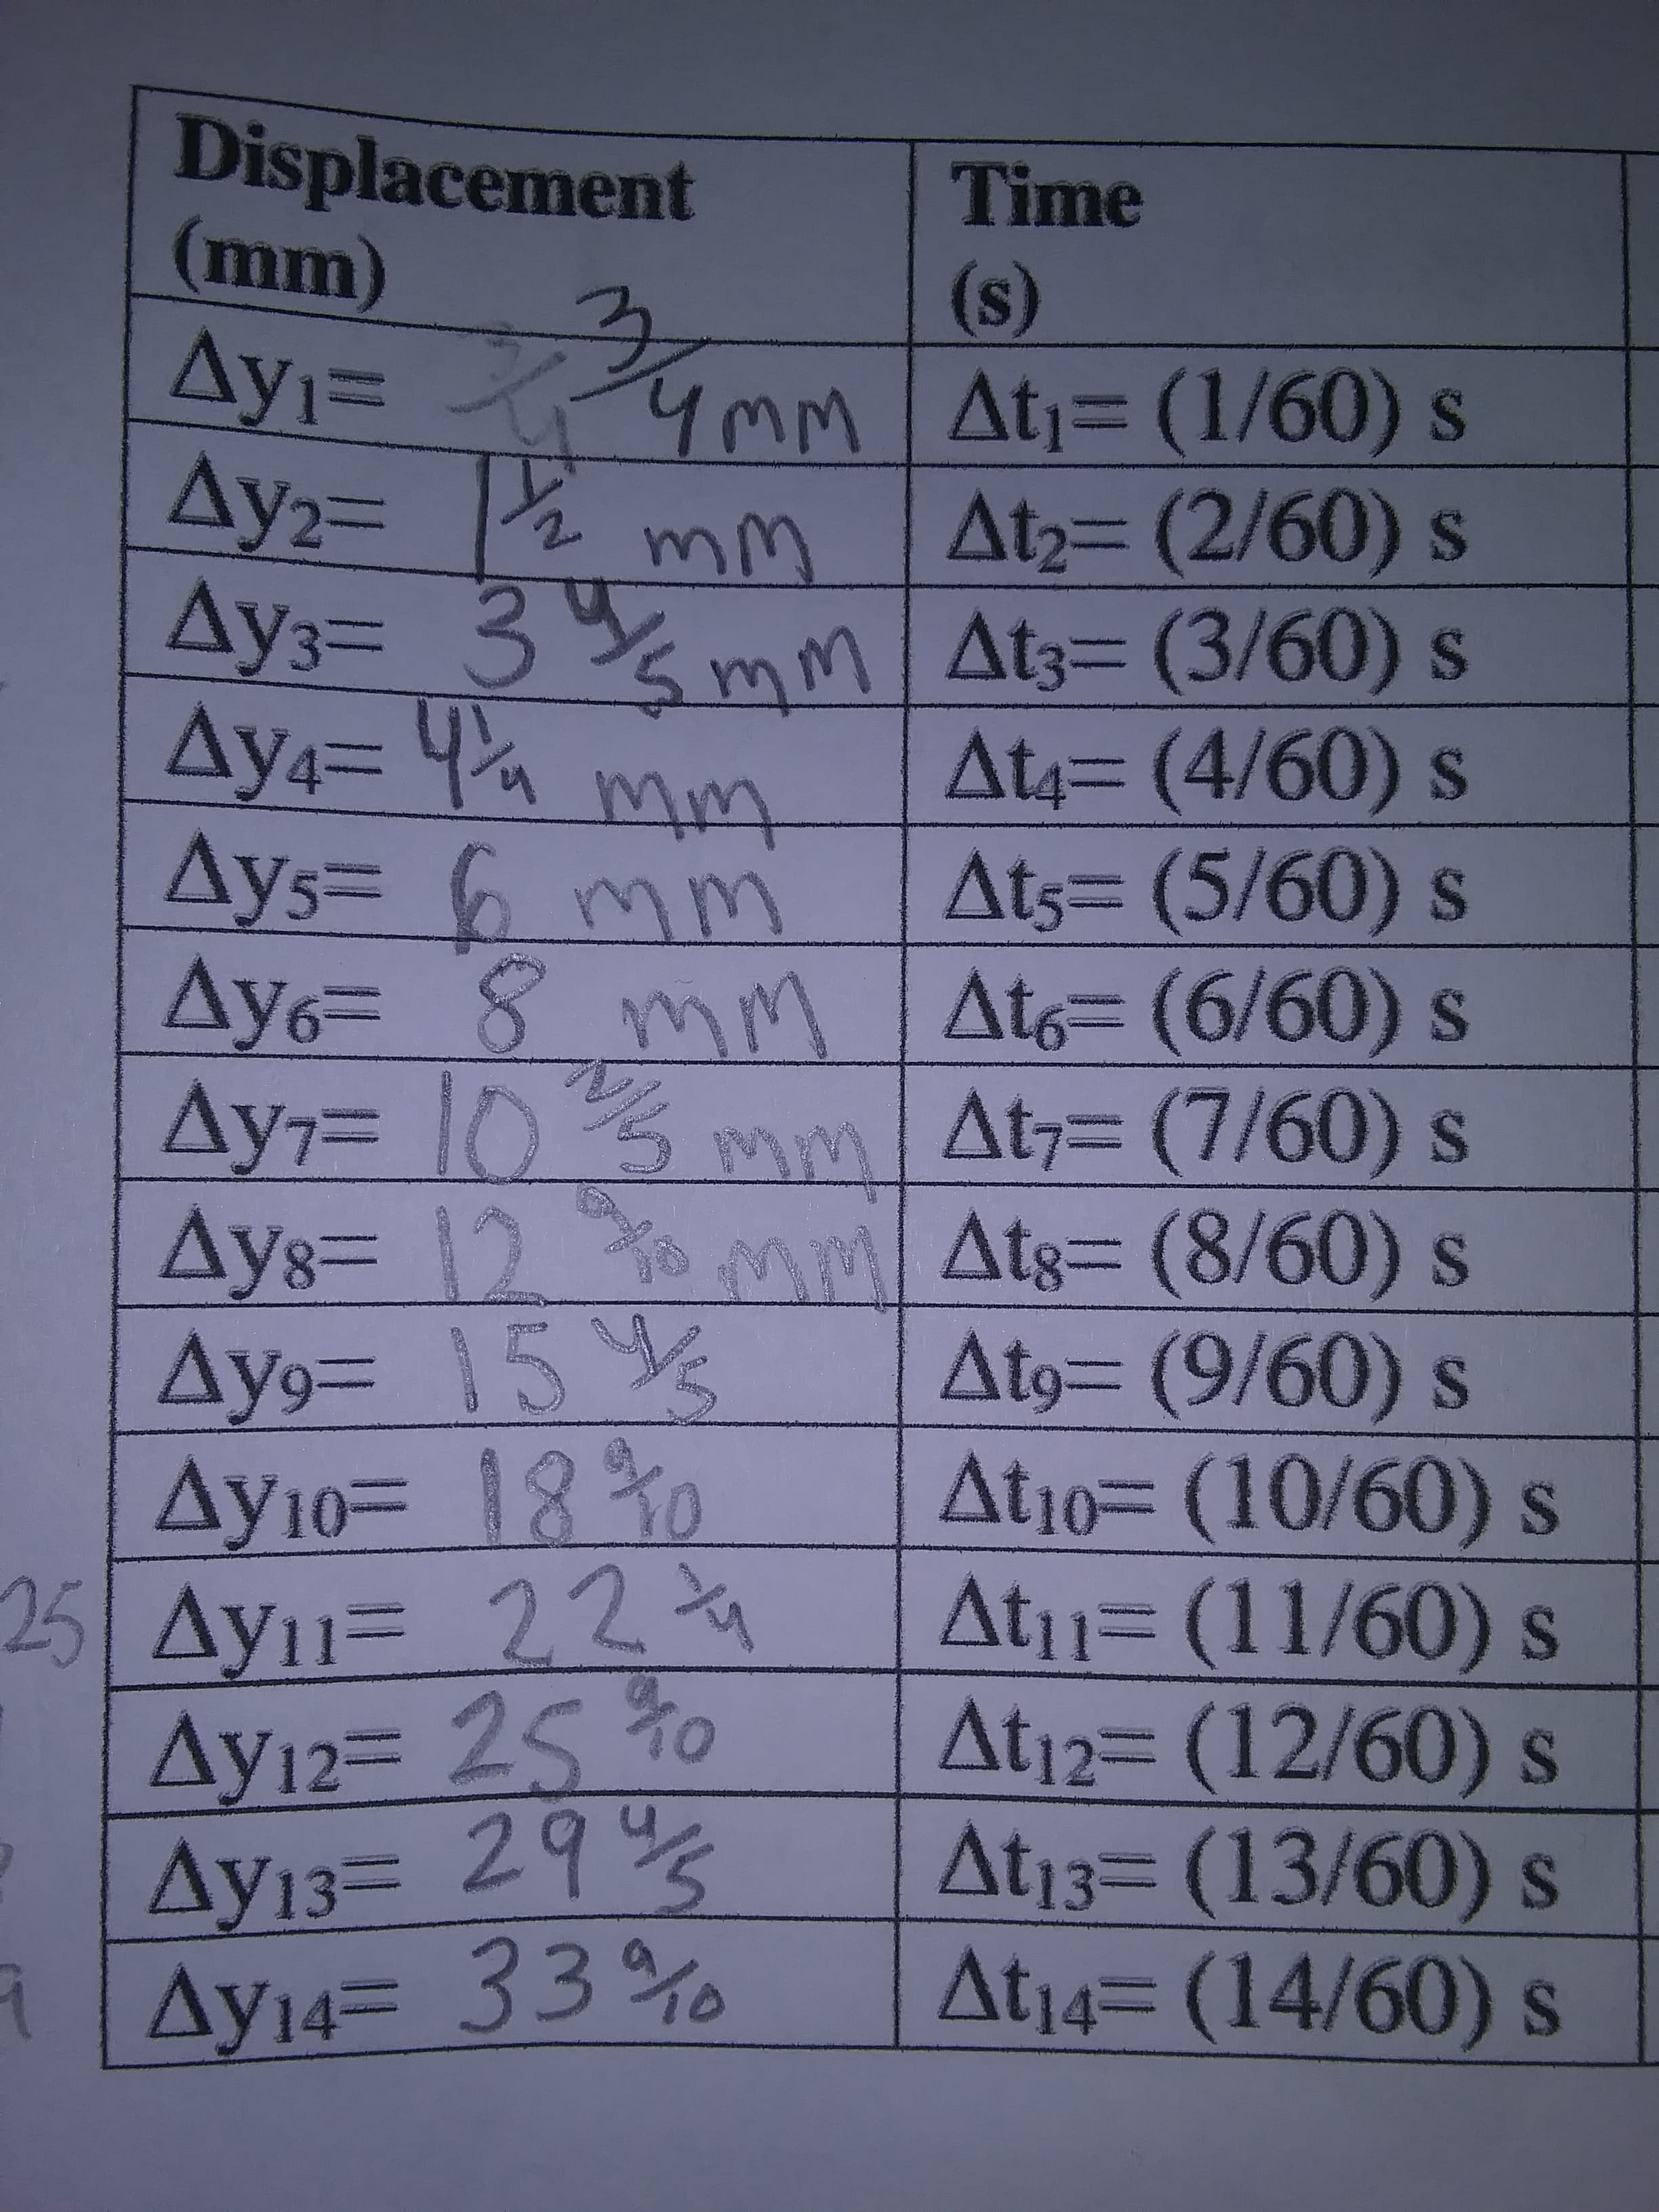 Displacement (mm) Time (s)
Δy1= 3/4 3/4 mm Δt1= (1/60) s
Δy2= 1 1/2 mm Δt2= (2/60) s
Δy3= 3 4/5 mm Δt3= (3/60) s
Δy4= 4 1/4 mm Δt4= (4/60) s
Δy5= 6 mm Δt5= (5/60) s
Δy6= 8 mm Δt6= (6/60) s
Δy7= 10 2/5 mm Δt7= (7/60) s
Δy8= 12 9/10 mm Δt8= (8/60) s
Δy9= 15 4/5 Δt9= (9/60) s
Δy10= 18 9/10 Δt10= (10/60) s
25 Δy11= 22 1/4 Δt11= (11/60) s
Δy12= 25 9/10 Δt12= (12/60) s
Δy13= 29 4/5 Δt13= (13/60) s
9 Δy14= 33 9/10 Δt14= (14/60) s